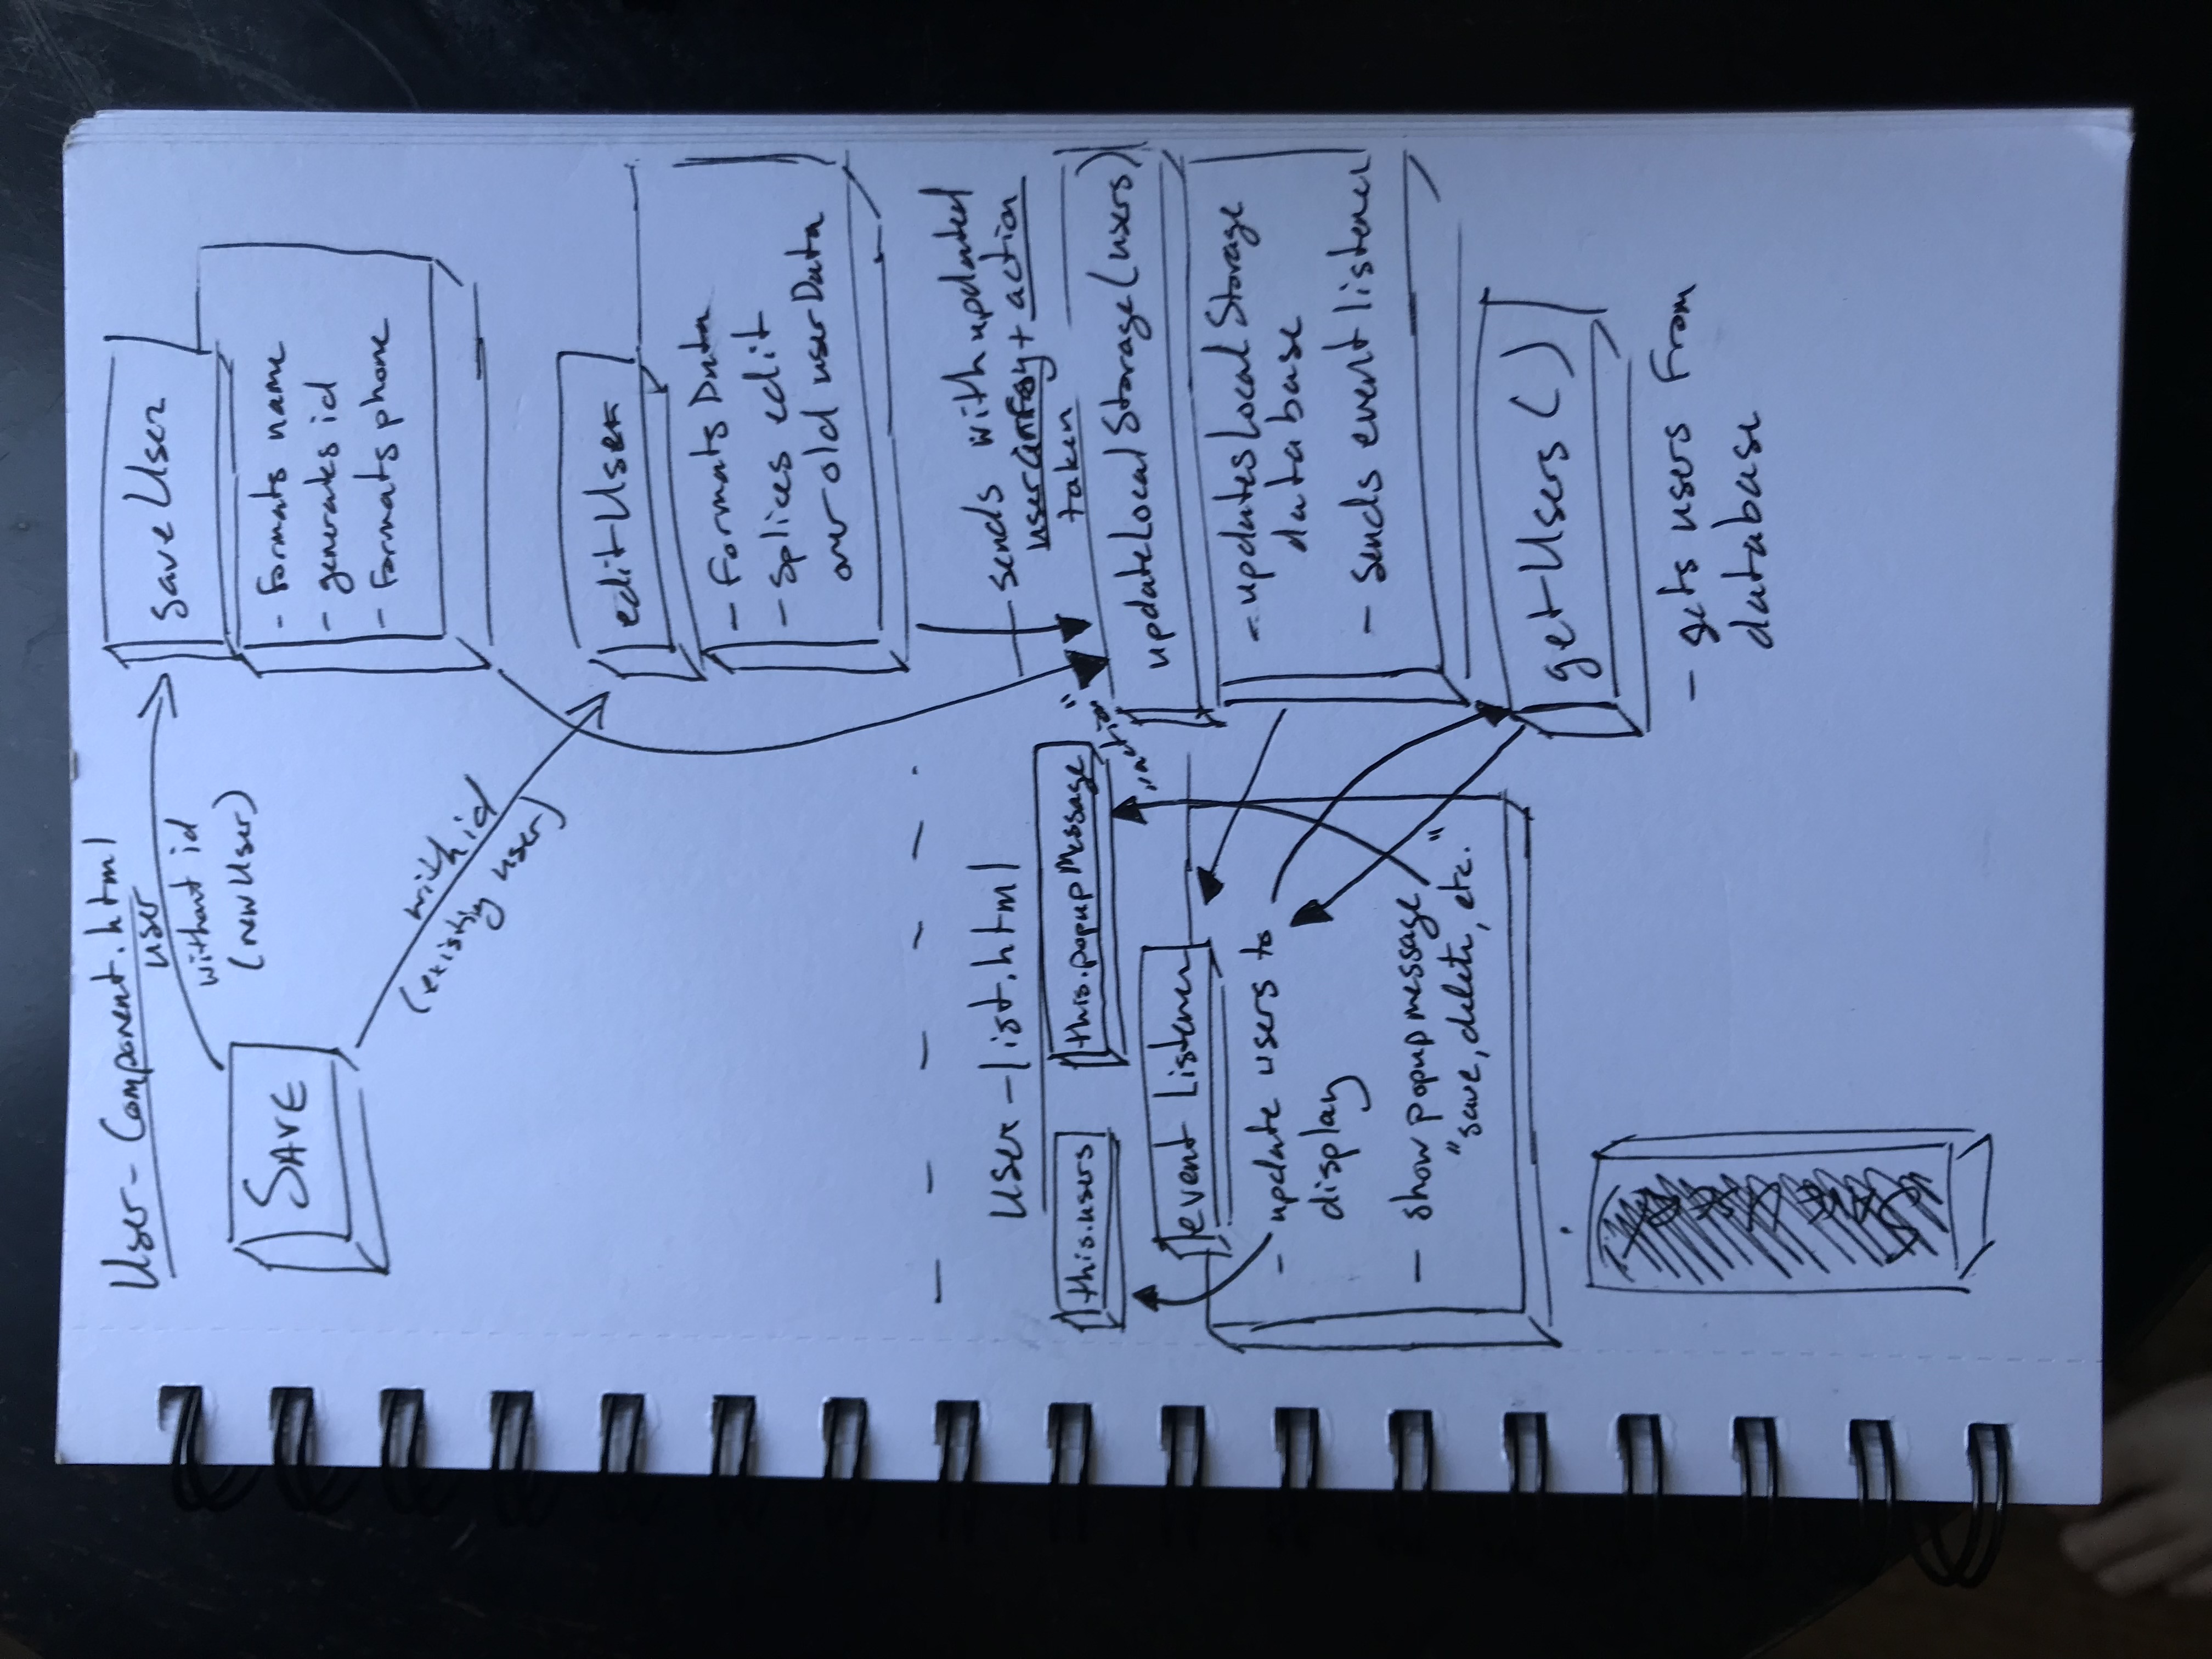 User-Component.html
user
without id
(new User)
SAVE
saveUser
- Formats name
- generates id
- Formats phone
with id
(existing user)
editUser
- Formats Data
- Splices edit
over old userData
sends with updated
user array + action
taken
user-list.html
this.users
this.popupMessage
"action"
updateLocalStorage(users)
- updates Local Storage
database
- sends event listener
event Listener
- update users to
display
- show popup message
"save, delete, etc."
getUsers()
- gets users From
database